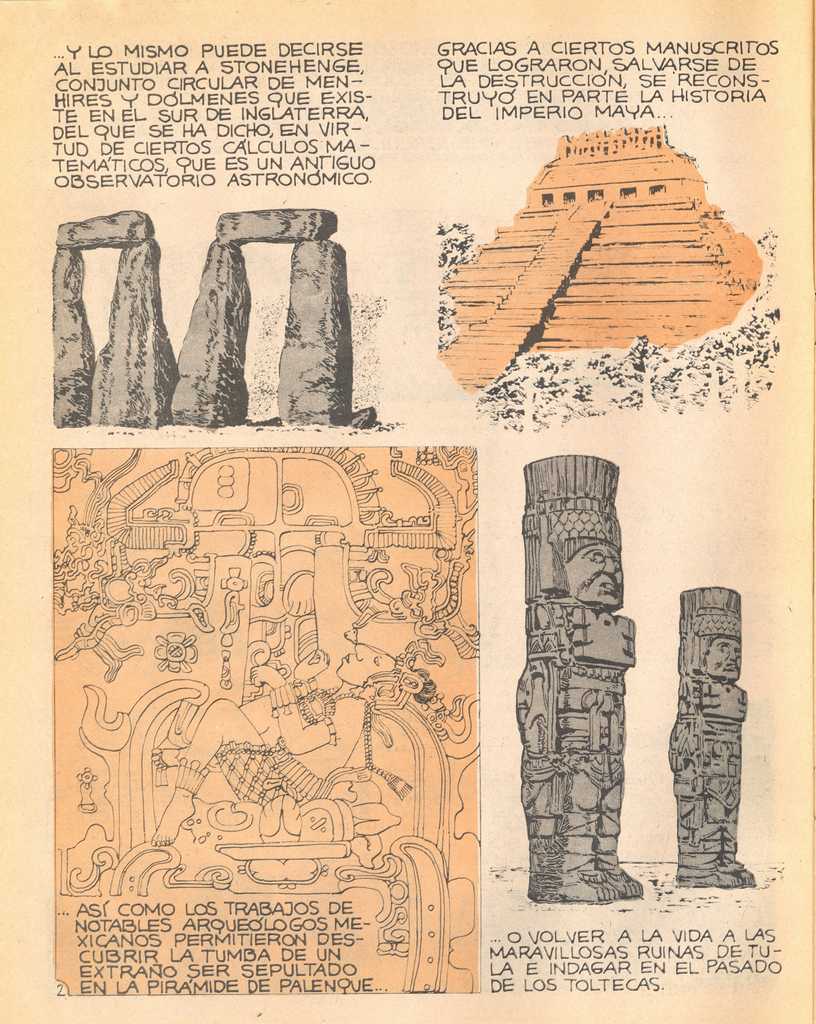 ...Y LO MISMO PUEDE DECIRSE
AL ESTUDIAR A STONEHENGE,
CONJUNTO CIRCULAR DE MEN-
HIRES Y DÓLMENES QUE EXIS-
TE EN EL SUR DE INGLATERRA,
DEL QUE SE HA DICHO, EN VIR-
TUD DE CIERTOS CÁLCULOS MA-
TEMÁTICOS, QUE ES UN ANTIGUO
OBSERVATORIO ASTRONÓMICO.
GRACIAS A CIERTOS MANUSCRITOS
QUE LOGRARON, SALVARSE DE
LA DESTRUCCIÓN, SE RECONS-
TRUYÓ EN PARTE LA HISTORIA
DEL IMPERIO MAYA...
... ASÍ COMO LOS TRABAJOS DE
NOTABLES ARQUEÓLOGOS ME-
XICANOS PERMITIERON DES-
CUBRIR LA TUMBA DE UN
EXTRAÑO SER SEPULTADO
EN LA PIRÁMIDE DE PALENQUE...
2
... O VOLVER A LA VIDA A LAS
MARAVILLOSAS RUINAS DE TU-
LA E INDAGAR EN EL PASADO
DE LOS TOLTECAS.